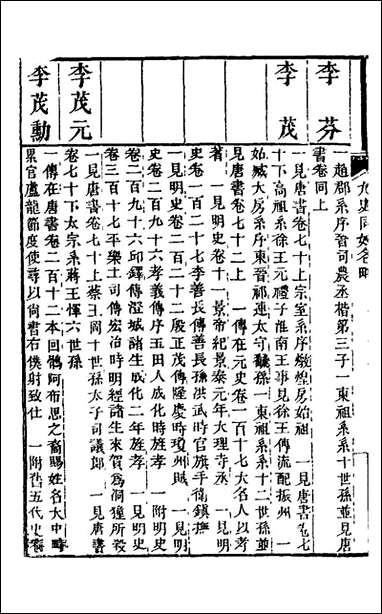 九史同姓名略
李芬
一趙郡系序晉司農丞楷第三子 一東祖系系十世孫並見唐
書卷同上
李茂
一見唐書卷七十上宗室系序燉煌房始祖 一見唐書卷七
十下高祖系徐王元禮子淮南王事見徐王傳流配振州 一
姑臧大房系序東晉祁連太守翻孫 一東祖系系十二世孫並
見唐書卷七十二上 一傳在元史卷一百十七大名人以孝
著 一見明史卷十一景帝紀景泰元年大理寺丞 一見明
史卷一百二十七李善長傳善長孫洪武時官旗手衛鎮撫
一見明史卷二百二十二殷正茂傳隆慶時瓊州賊 一見明
史卷二百九十六孝義傳序玉田人成化時旌孝 一附明史
卷二百九十六邱鐸傳澄城諸生成化二年旌孝 一見明史
卷三百十七平樂土司傳宏治時明經諸生來賀爲洞獞所殺
李茂元
一見唐書卷七十上蔡王岡十世孫太子司議郎 一見唐書
卷七十下太宗系蔣王惲六世孫
李茂勳
一傳在唐書卷二百十二本回鶻阿布思之裔賜姓名大中時
累官盧龍節度使尋以尚書右僕射致仕 一附舊五代史卷